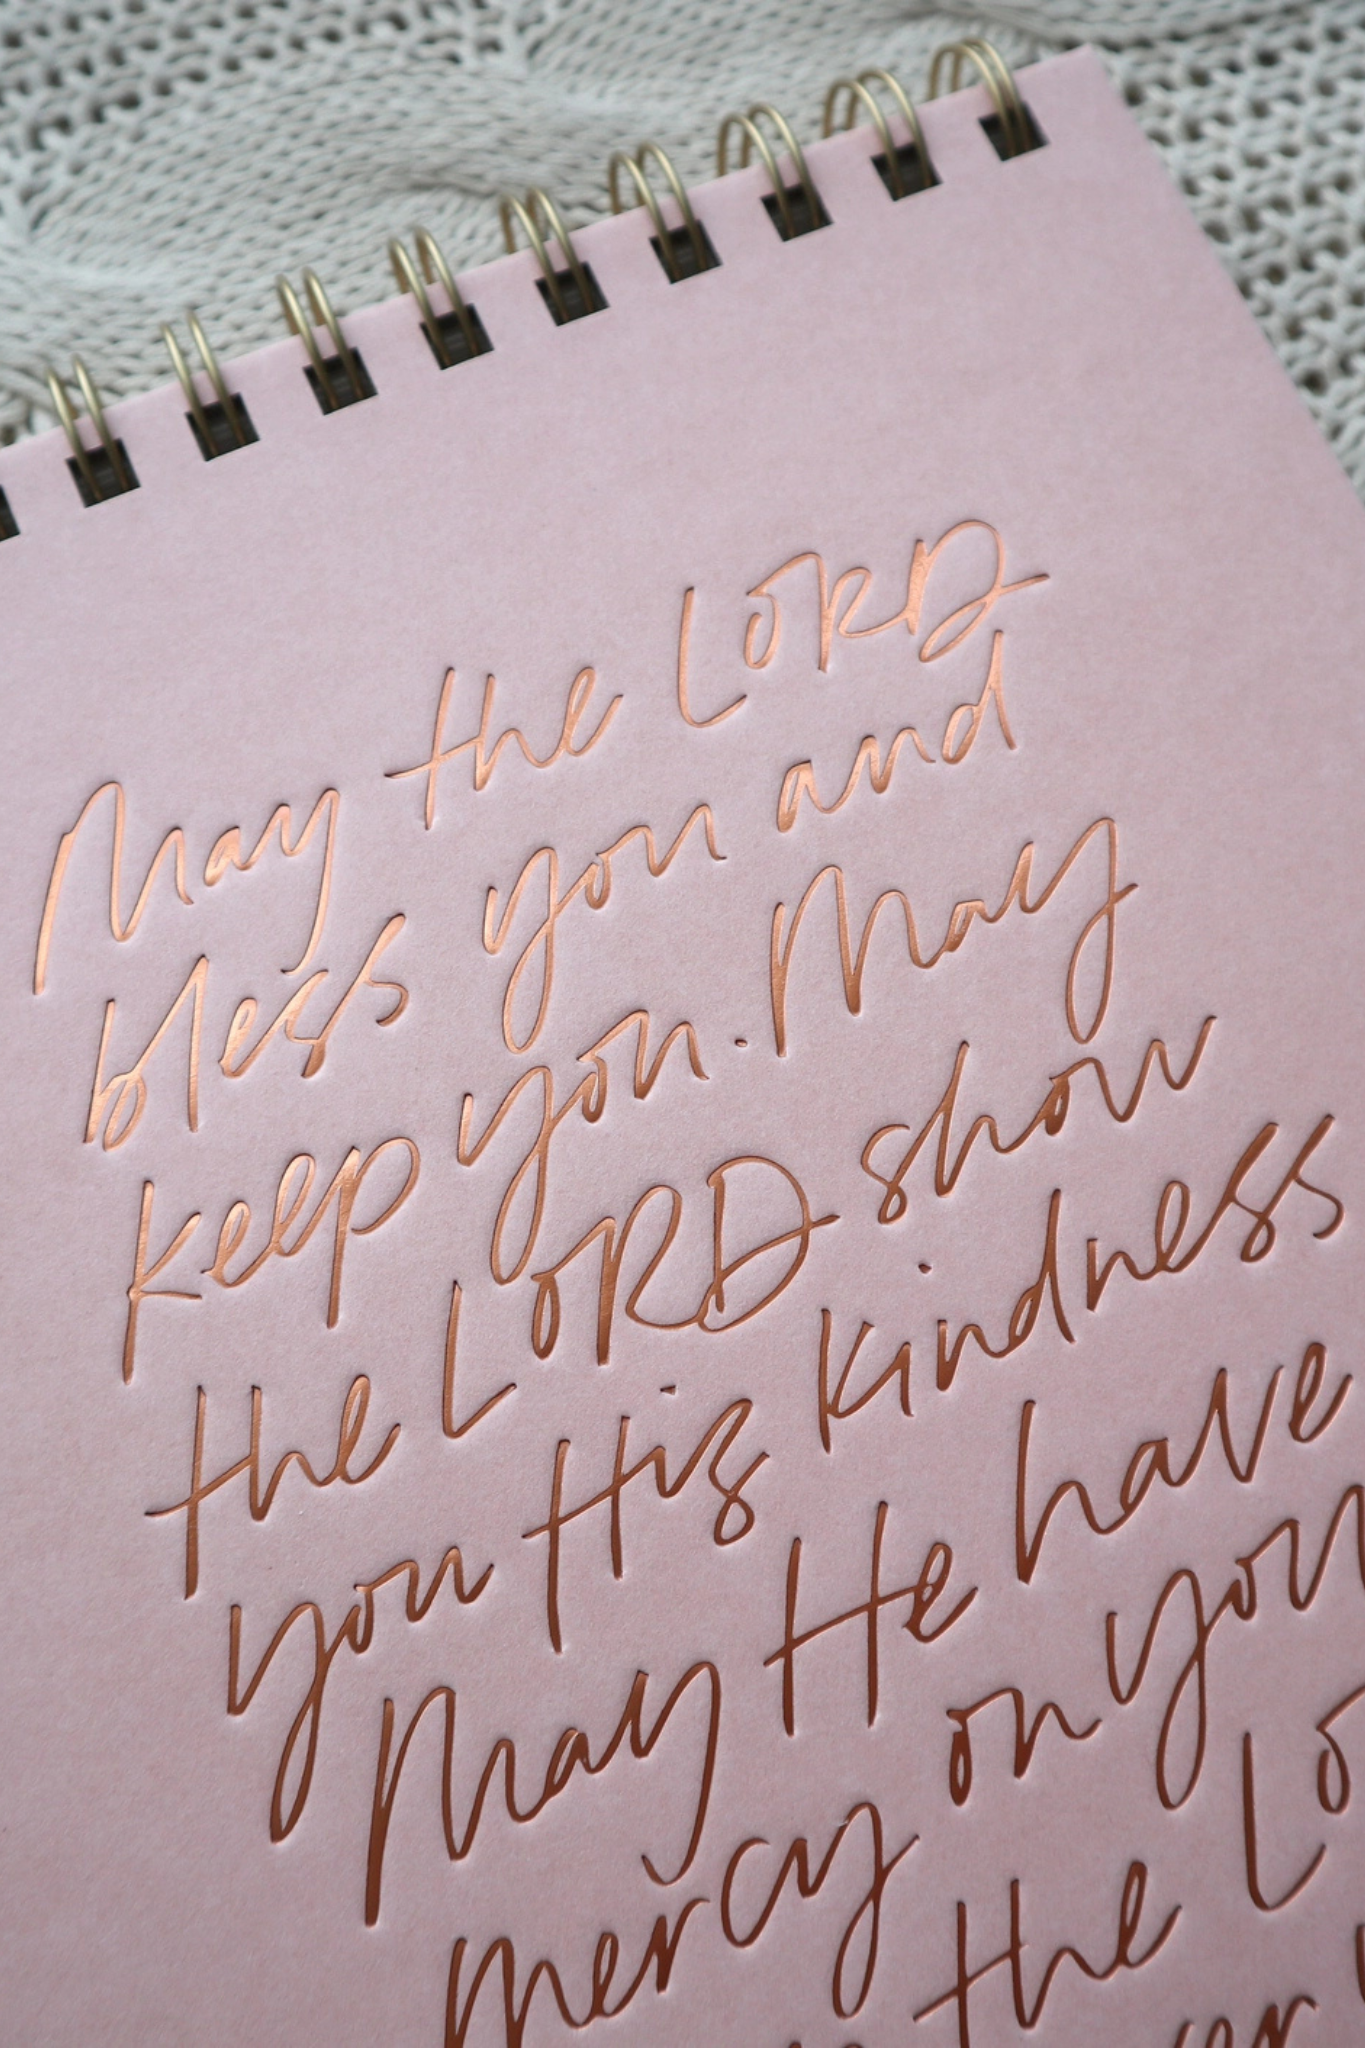 May the LORD
bless you and
keep you. May
the LORD show
you His kindness
May He have
mercy on you
the